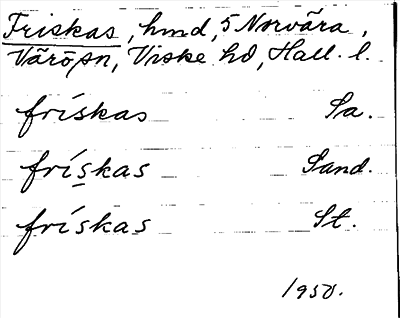 Friskas, hmd, 5 Norvära,
Värö sn, Viske hd, Hall. l.
frískas Sa.
frís̱kas Sand.
frískas St.
1950.